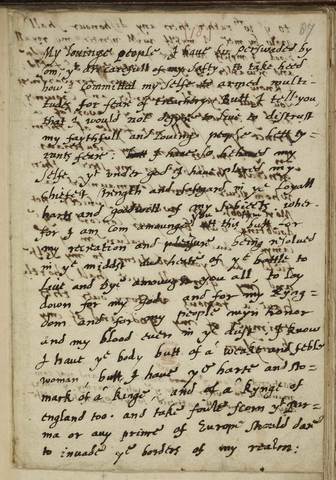 87
My loving people I have bin perswaded by
som yt are carefull of my safty to take heed
how I committed my selfe to armed multi-
tudes for fear of treachery. butt I tell you
that I would not desyre to live to distrust
my faythfull and loving people lett ty-
rants feare I have so behaved my
selfe yt under god I have placed my
cheifest strength and safgard in ye loyall
harts and goodwill of my subiects wher-
for I am com amoungst you att this but for
my recreation and pleasure being resolved
in ye middst and heate of ye battle to
live and dye amoungst you all to lay
down for my god and for my kyng-
dom and for my people myn honor
and my blood even in ye dust I know
I have ye body butt of a weake and feble
woman butt I have ye harte and sto-
mack of a kinge and of a kynge of
england too. and take foule scorn yt par-
ma or any prince of Europe should dare
to invade ye borders of my realm: